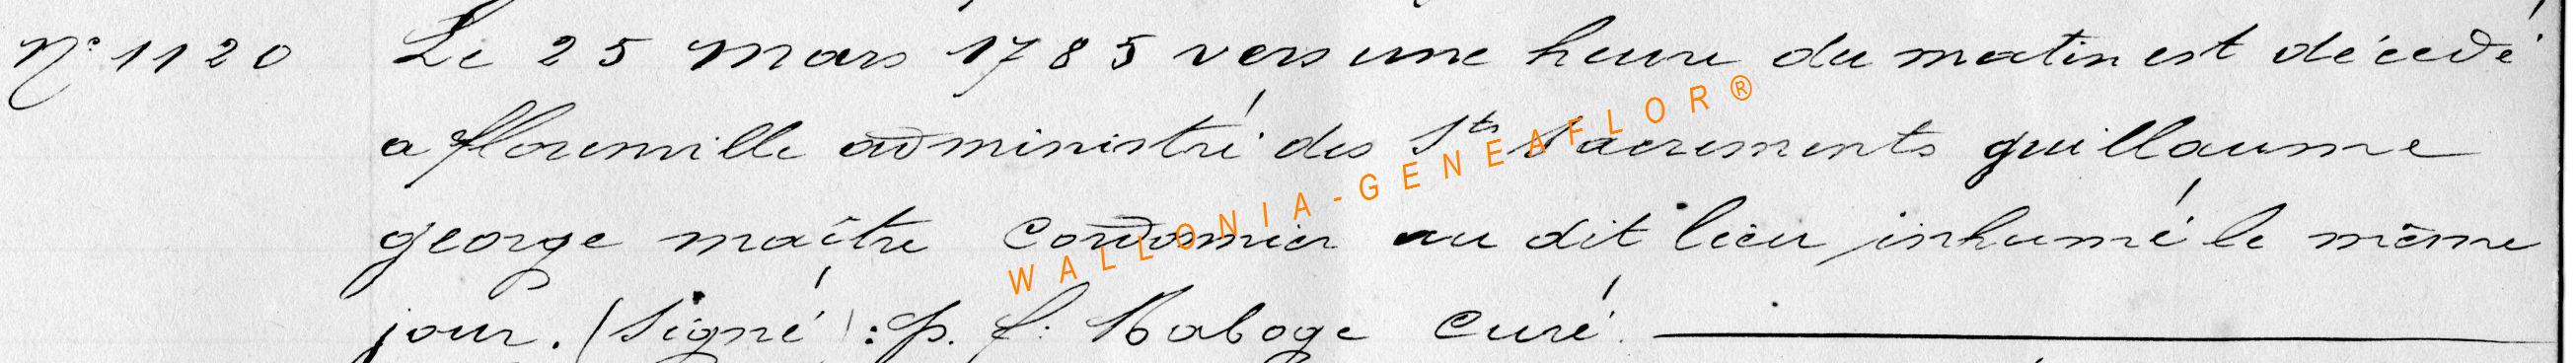 N° 1120 Le 25 Mars 1785 vers une heure du matin est décédé
a florenville administré des Sts Sacrements guillaume
george maître Cordonnier au dit lieu inhumé le même
jour. (Signé) : p. f. Maboge Curé.
WALLONIA-GENEAFLOR®